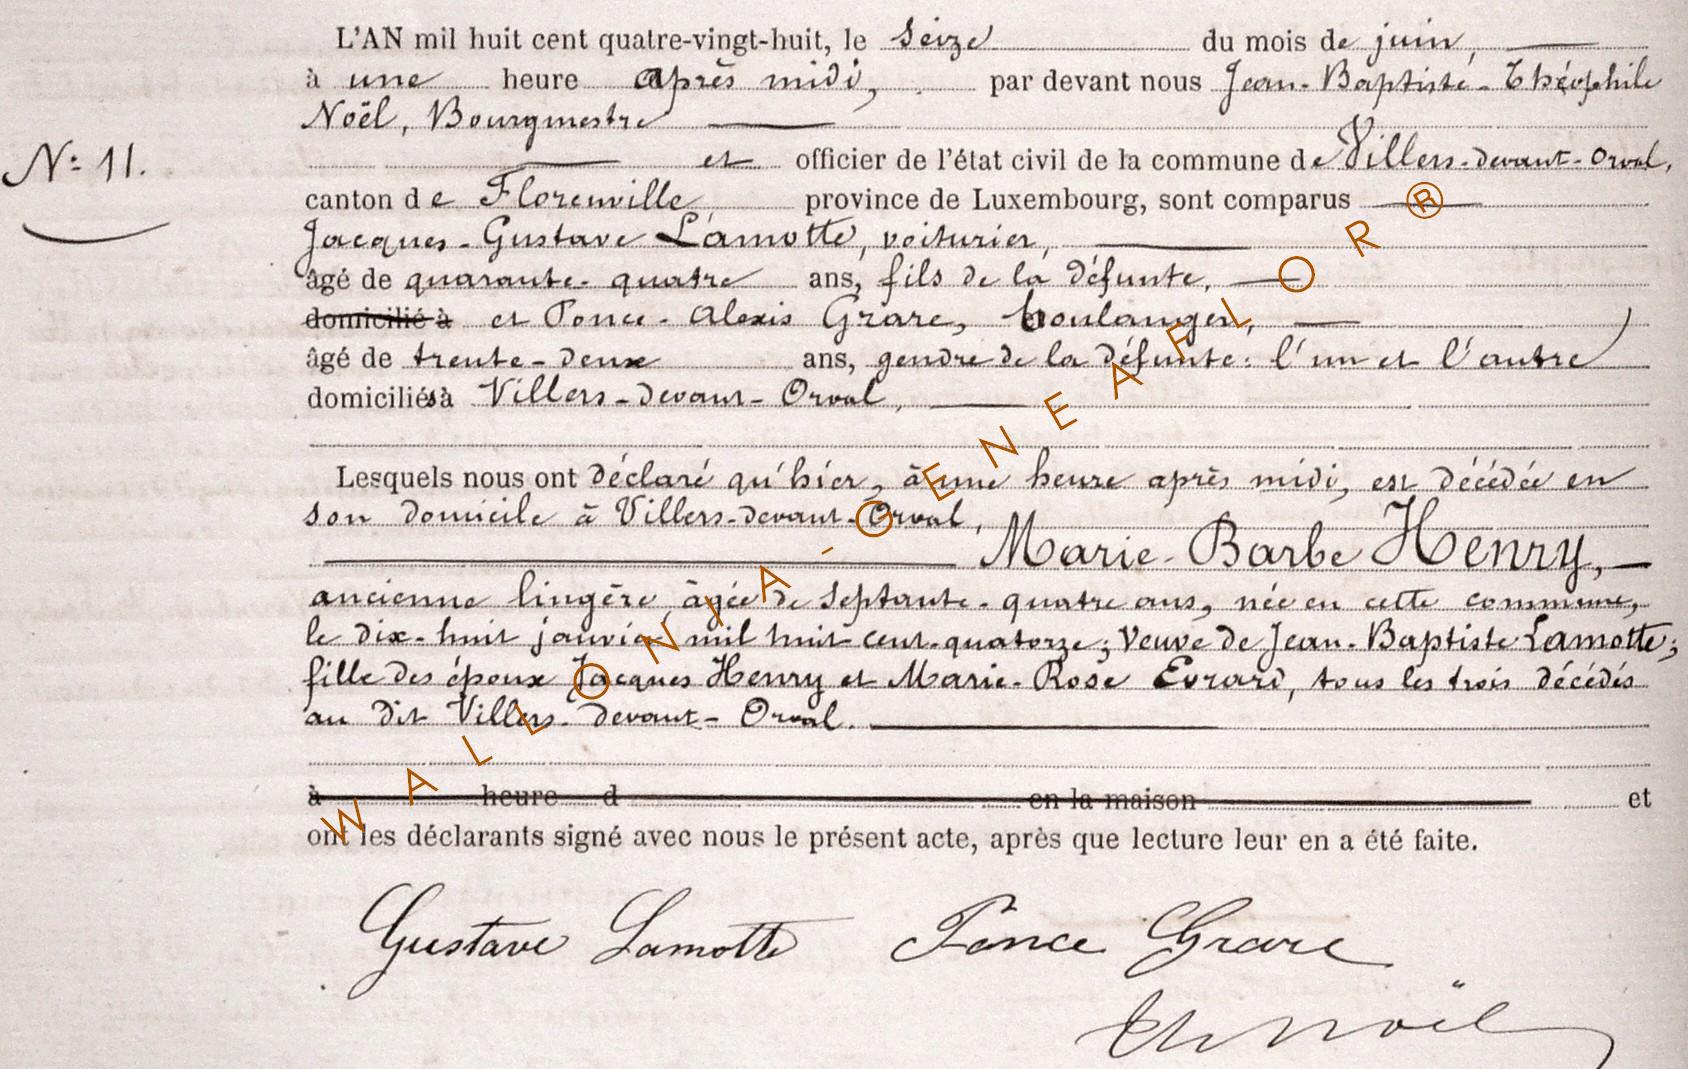 L'AN mil huit cent quatre-vingt-huit, le seize du mois de juin,
à une heure après midi, par devant nous Jean-Baptiste-Théophile
Noël, Bourgmestre
N: 11.
et officier de l'état civil de la commune de Villers-devant-Orval,
canton de Florenville, province de Luxembourg, sont comparus
Jacques-Gustave Lamotte, voiturier,
âgé de quarante-quatre ans, fils de la défunte,
domicilié à et Ponce-Alexis Grare, boulanger,
âgé de trente-deux ans, gendre de la défunte: l'un et l'autre
domiciliés à Villers-devant-Orval,
Lesquels nous ont déclaré qu'hier, à une heure après midi, est décédée en
son domicile à Villers-devant-Orval,
Marie-Barbe Henry,
ancienne lingère, âgée de septante-quatre ans, née en cette commune,
le dix-huit janvier mil huit cent-quatorze; veuve de Jean-Baptiste Lamotte;
fille des époux Jacques Henry et Marie-Rose Evrard, tous les trois décédés
au dit Villers-devant-Orval.
à heure d en la maison et
ont les déclarants signé avec nous le présent acte, après que lecture leur en a été faite.
Gustave Lamotte Ponce Grare
Th Noël
WALLONIA-OENEAFLOR®